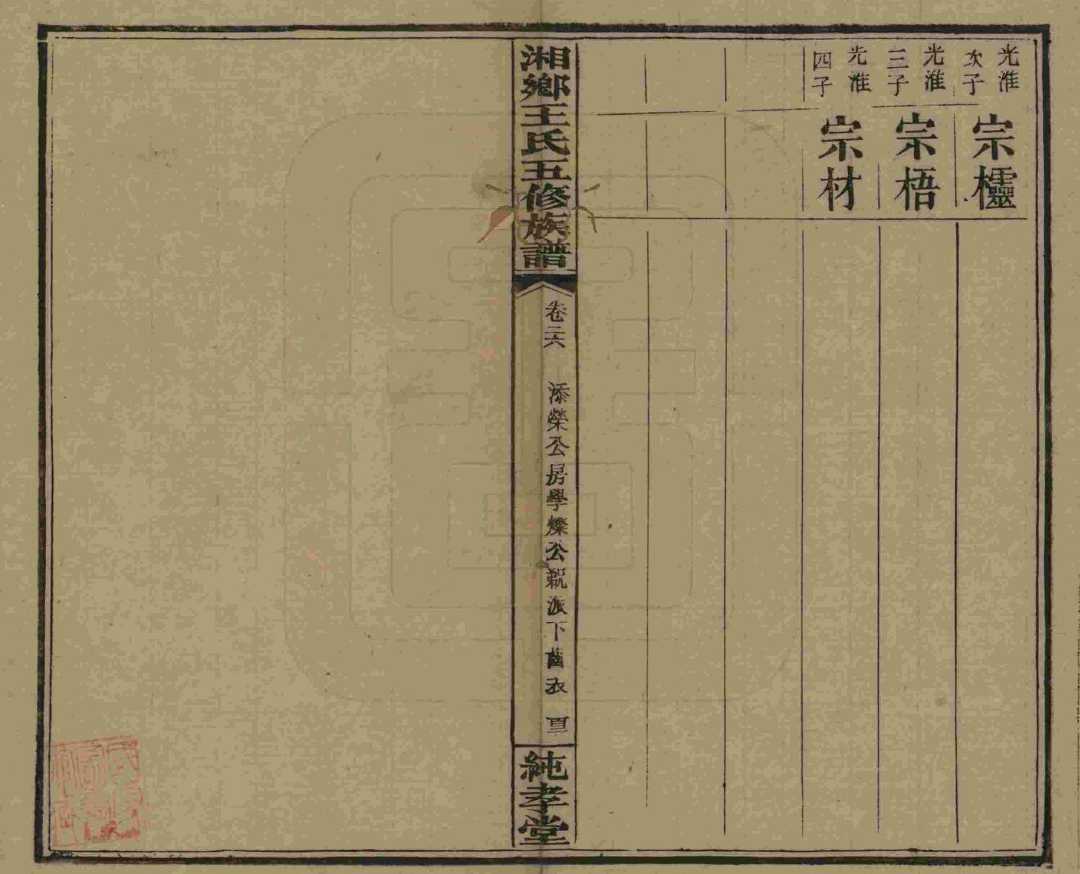 光淮次子
宗欞
光淮三子
宗梧
光淮四子
宗材
湘鄉王氏五修族譜
卷二六
添榮公房學爍公親派下齒衣
純孝堂